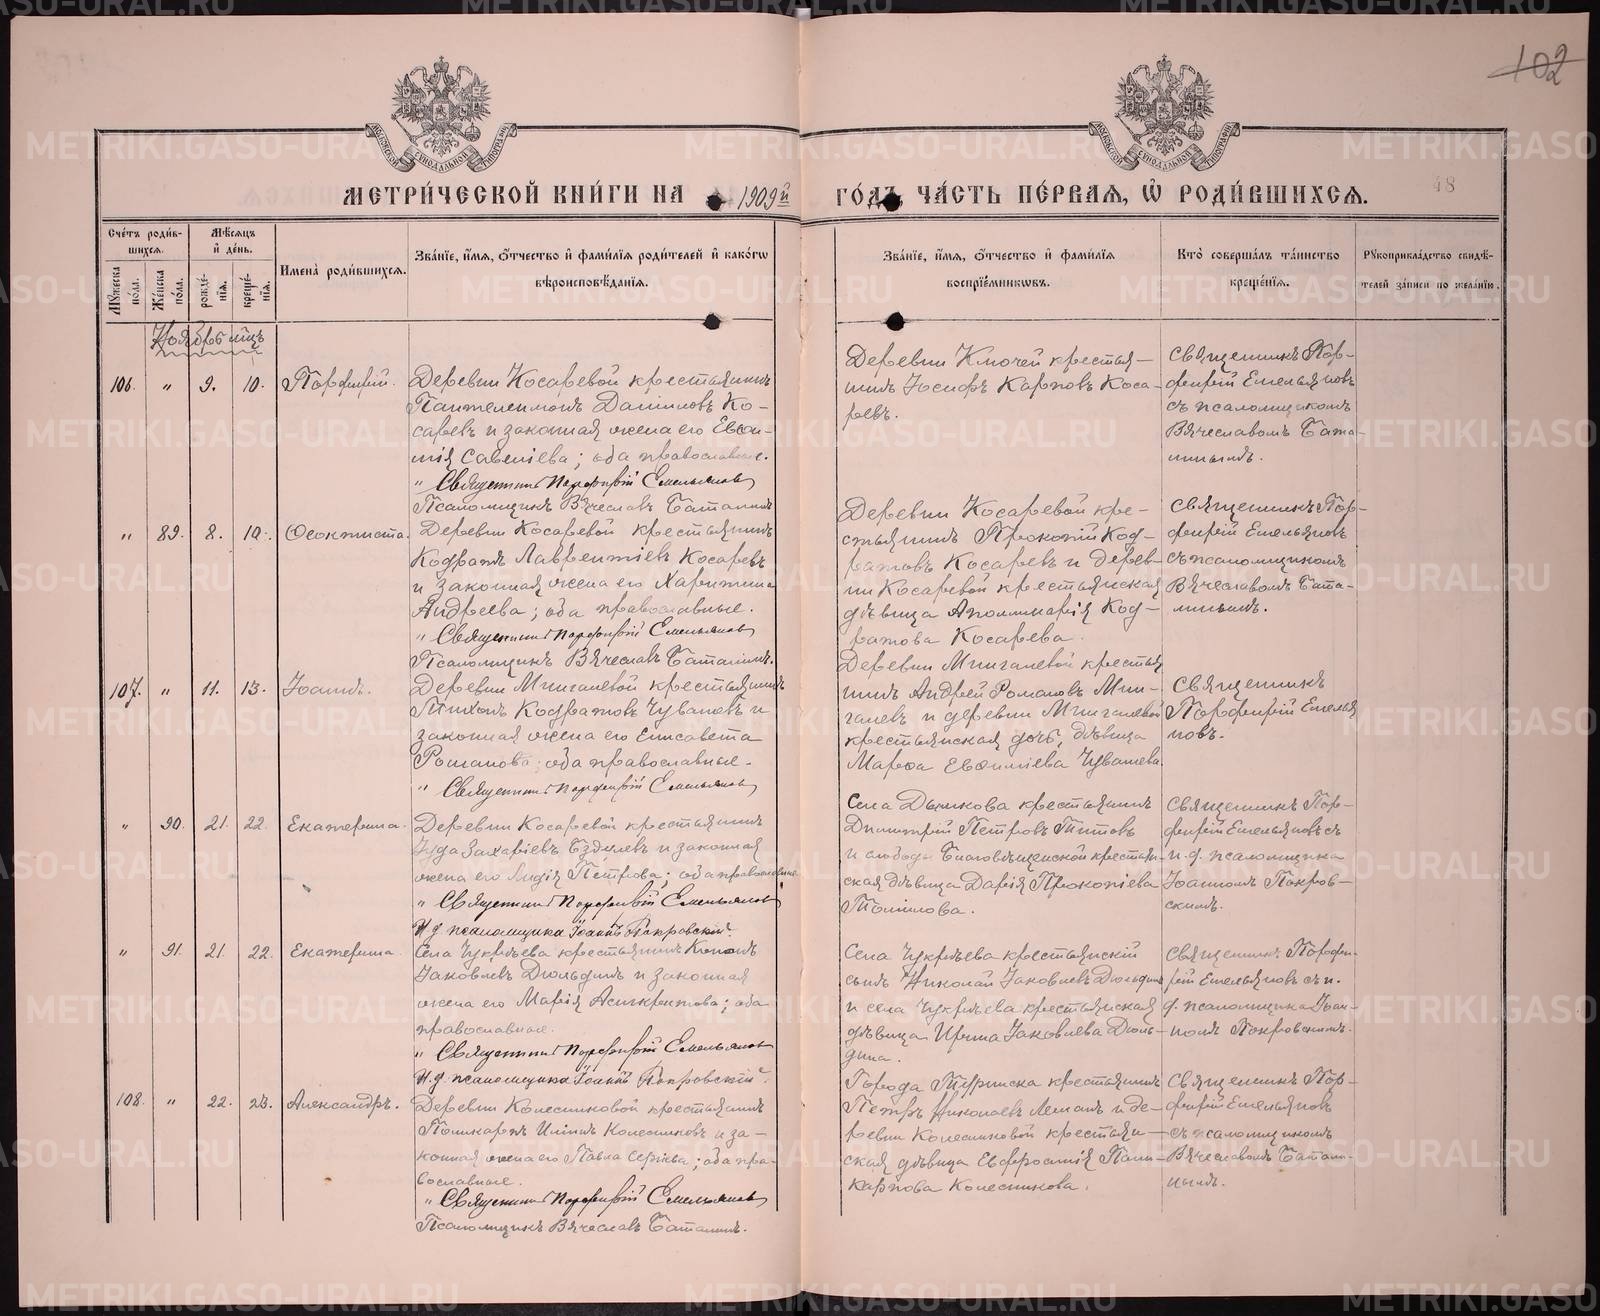 102
МЕТРИ́ЧЕСКОЙ КНИ́ГИ НА 1909й
ГО́ДЪ ЧА́СТЬ ПЕ́РВАЯ, Ѡ҆ РОДИ́ВШИХСЯ.
48
Сче́тъ роди́в-
шихся.
Мѣ́сяцъ
и҆ де́нь.
Мꙋжеска по́ла.
Же́нска по́ла.
рожде́-
нїѧ.
креще́-
нїѧ.
И҆мена̀ роди́вшихсѧ.
Зва́нїе, и҆́мѧ, ѻ҆́тчество и҆ фами́лїѧ роди́телей и҆ како́гѡ
вѣроисповѣ́данїѧ.
Зва́нїе, и҆́мѧ, ѻ҆́тчество и҆ фами́лїѧ
воспрїе́мникѡвъ.
Кто̀ соверша́лъ та́инство
креще́нїѧ.
Рꙋкоприкла́дство свидѣ́-
телей за́писи по жела́нїю.
Ноябрь м-цъ
106. " 9. 10. Порфирій.
Деревни Косаревой крестьянинъ
Пантелеимонъ Даніиловъ Ко-
саревъ и законная жена его Евѳи-
мія Савеліева; оба православные.
" Священникъ Порфирій Емельяновъ
Псаломщикъ Вячеславъ Баталинъ
Деревни Ключей крестья-
нинъ Іосифъ Карповъ Коса-
ревъ.
Священникъ Пор-
фирій Емельяновъ
съ псаломщикомъ
Вячеславомъ Бата-
линымъ.
" 89. 8. 10. Ѳеоктиста.
Деревни Косаревой крестьянинъ
Кодратъ Лаврентіевъ Косаревъ
и законная жена его Харитина
Андреева; оба православные.
" Священникъ Порфирій Емельяновъ
Псаломщикъ Вячеславъ Баталинъ.
Деревни Косаревой кре-
стьянинъ Прокопій Код-
ратовъ Косаревъ и дерев-
ни Косаревой крестьянская
дѣвица Аполлинарія Код-
ратова Косарева.
Священникъ Пор-
фирій Емельяновъ
съ псаломщикомъ
Вячеславомъ Бата-
линымъ.
107. " 11. 13. Іоаннъ.
Деревни Мингалевой крестьянинъ
Тихонъ Кодратовъ Чувашевъ и
законная жена его Елисавета
Романова; оба православные.
" Священникъ Порфирій Емельяновъ
Деревни Мингалевой крестья
нинъ Андрей Романовъ Мин-
галевъ и деревни Мингалевой
крестьянская дочь, дѣвица
Марѳа Евѳиміева Чувашева.
Священникъ
Порфирій Емелья
новъ.
" 90. 21. 22. Екатерина.
Деревни Косаревой крестьянинъ
Іуда Захаріевъ и законная
жена его Лидія Петрова; оба православные.
" Священникъ Порфирій Емельяновъ
И.д. псаломщика Іоаннъ Покровскій.
Села крестьянинъ
Димитрій Петровъ Титовъ
и слободы Благовѣщенской крестьян-
ская дѣвица Дарія Прокопіева
Томилова.
Священникъ Пор-
фирій Емельяновъ съ
и.д. псаломщика
Іоанномъ Покров-
скимъ.
" 91. 21. 22. Екатерина.
Села Чукреева крестьянинъ
Іаковлевъ Дюльдинъ и законная
жена его Марія Асигкритова; оба
православные.
" Священникъ Порфирій Емельяновъ
И.д. псаломщика Іоаннъ Покровскій.
Села Чукреева крестьянскій
сынъ Николай Іаковлевъ Дюльдинъ
и села Чукреева крестьянская
дѣвица Ирина Іаковлева Дюль-
дина.
Священникъ Порфи-
рій Емельяновъ съ и.
д. псаломщика Іоан-
номъ Покровскимъ.
108. " 22. 23. Александръ.
Деревни Колесниковой крестьянинъ
Поликарпъ Иліинъ Колесниковъ и за-
конная жена его Павла Сергіева; оба пра-
вославные.
" Священникъ Порфирій Емельяновъ
Псаломщикъ Вячеславъ Баталинъ.
Города Туринска крестьянинъ
Петръ Николаевъ и де-
ревни Колесниковой крестьян-
ская дѣвица Евфросинія Поли-
карпова Колесникова.
Священникъ Пор-
фирій Емельяновъ
съ псаломщикомъ
Вячеславомъ Батали-
нымъ.
METRIKI.GASO-URAL.RU